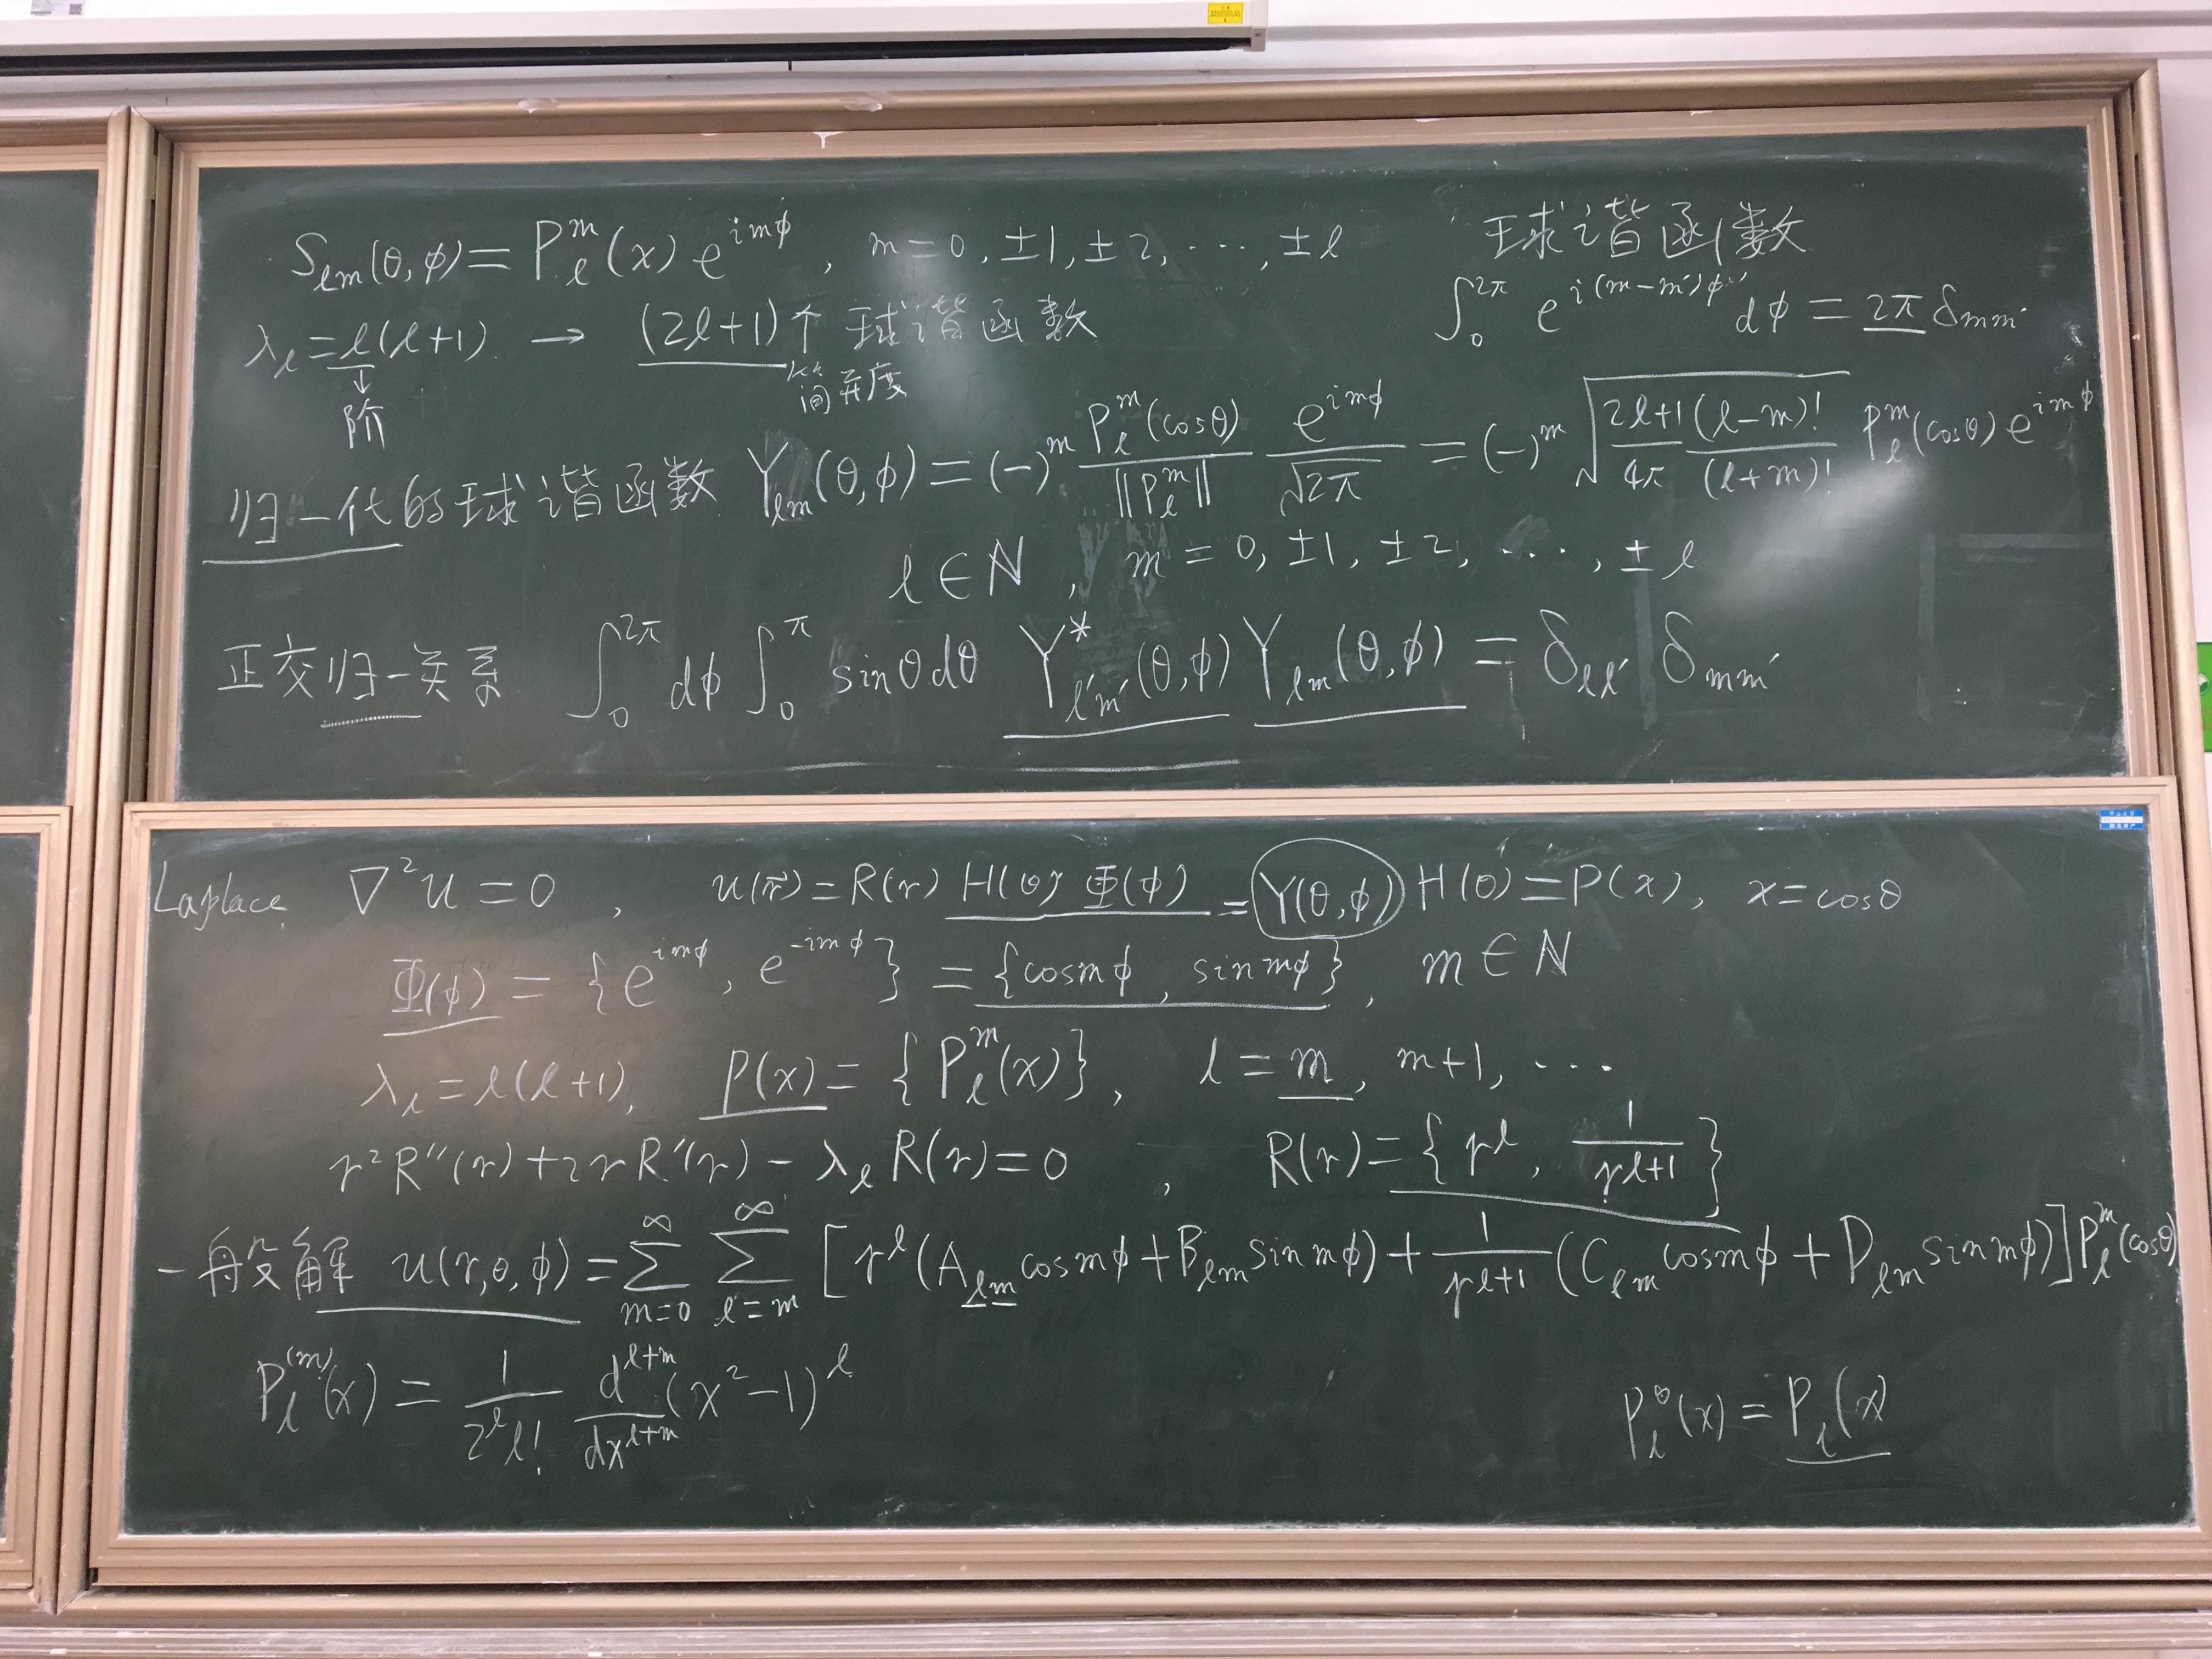 S_{lm}(θ,φ) = P_l^m(x) e^{imφ}, m = 0, ±1, ±2, ⋯, ±l
球谐函数
λ_l = l(l+1) → (2l+1)个 球谐函数
∫_0^{2π} e^{i(m-m')φ} dφ = 2π δ_{mm'}
↓
阶
简并度
归一化的球谐函数 Y_{lm}(θ,φ) = (-)^m \frac{P_l^m(cosθ)}{‖P_l^m‖} \frac{e^{imφ}}{√{2π}} = (-)^m √{\frac{2l+1}{4π} \frac{(l-m)!}{(l+m)!}} P_l^m(cosθ) e^{imφ}
l ∈ ℕ, m = 0, ±1, ±2, ⋯, ±l
正交归一关系 ∫_0^{2π} dφ ∫_0^π sinθ dθ Y*_{l'm'}(θ,φ) Y_{lm}(θ,φ) = δ_{ll'} δ_{mm'}
Laplace ∇²u = 0, u(\vec{r}) = R(r) H(θ) Φ(φ) = Y(θ,φ) H(θ) ≡ P(x), x = cosθ
Φ(φ) = {e^{imφ}, e^{-imφ}} = {cosmφ, sinmφ}, m ∈ ℕ
λ_l = l(l+1), P(x) = {P_l^m(x)}, l = m, m+1, ⋯
r²R''(r) + 2rR'(r) - λ_l R(r) = 0, R(r) = {r^l, \frac{1}{r^{l+1}}}
一般解 u(r,θ,φ) = ∑_{m=0}^∞ ∑_{l=m}^∞ [r^l (A_{lm} cosmφ + B_{lm} sinmφ) + \frac{1}{r^{l+1}} (C_{lm} cosmφ + D_{lm} sinmφ)] P_l^m(cosθ)
P_l^{(m)}(x) = \frac{1}{2^l l!} \frac{d^{l+m}}{dx^{l+m}} (x²-1)^l
P_l^0(x) = P_l(x)